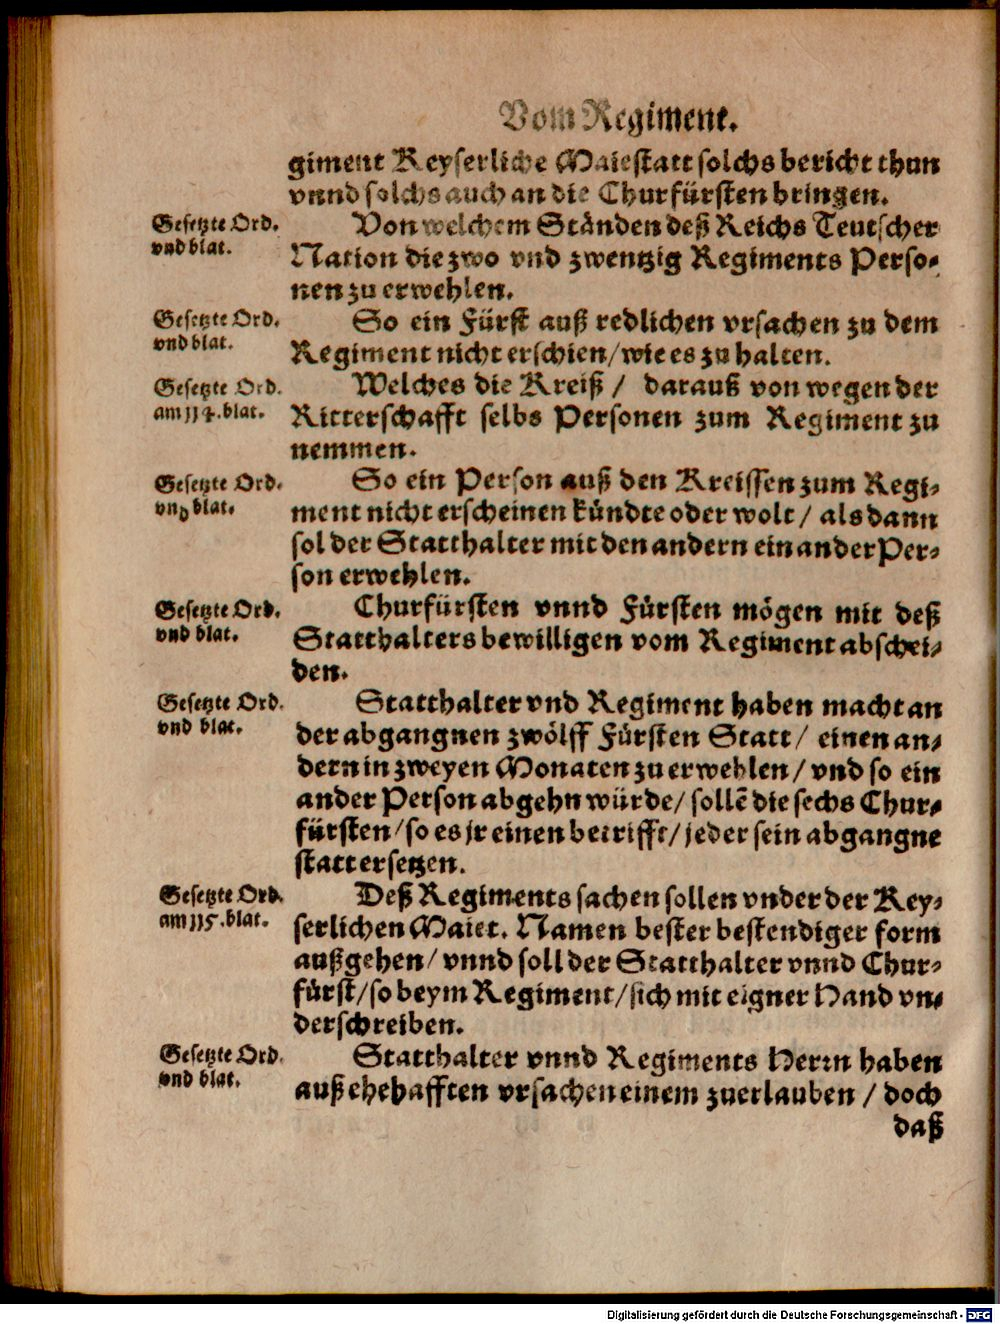 Vom Regiment.
giment Keyserliche Maiestatt solchs bericht thun
vnnd solchs auch an die Churfürsten bringen.
Gesetzte Ord.
vnd blat.
Von welchem Ständen deß Reichs Teutscher
Nation die zwo vnd zwentzig Regiments Perso-
nen zu erwehlen.
Gesetzte Ord.
vnd blat.
So ein Fürst auß redlichen vrsachen zu dem
Regiment nicht erschien/ wie es zu halten.
Gesetzte Ord.
am 114. blat.
Welches die Kreiß / darauß von wegen der
Ritterschafft selbs Personen zum Regiment zu
nemmen.
Gesetzte Ord.
vnd blat.
So ein Person auß den Kreissen zum Regi-
ment nicht erscheinen kündte oder wolt / als dann
sol der Statthalter mit den andern ein ander Per-
son erwehlen.
Gesetzte Ord.
vnd blat.
Churfürsten vnnd Fürsten mögen mit deß
Statthalters bewilligen vom Regiment abschei-
den.
Gesetzte Ord.
vnd blat.
Statthalter vnd Regiment haben macht an
der abgangnen zwölff Fürsten Statt / einen an-
dern in zweyen Monaten zu erwehlen / vnd so ein
ander Person abgehn würde / sollē die sechs Chur-
fürsten / so es jr einen betrifft / jeder sein abgangne
statt ersetzen.
Gesetzte Ord.
am 115. blat.
Deß Regiments sachen sollen vnder der Key-
serlichen Maiet. Namen bester bestendiger form
außgehen / vnnd soll der Statthalter vnnd Chur-
fürst / so beym Regiment / sich mit eigner Hand vn-
derschreiben.
Gesetzte Ord.
vnd blat.
Statthalter vnnd Regiments Herrn haben
auß ehehafften vrsachen einem zuerlauben / doch
daß
Digitalisierung gefördert durch die Deutsche Forschungsgemeinschaft - DFG